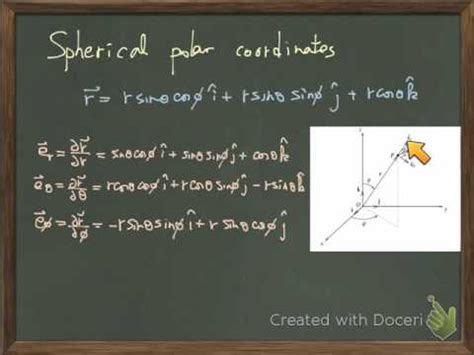 Spherical polar coordinates
r⃗ = r sinθ cosϕ î + r sinθ sinϕ ĵ + r cosθ k̂
e⃗r = ∂r⃗/∂r = sinθ cosϕ î + sinθ sinϕ ĵ + cosθ k̂
e⃗θ = ∂r⃗/∂θ = r cosθ cosϕ î + r cosθ sinϕ ĵ - r sinθ k̂
e⃗ϕ = ∂r⃗/∂ϕ = -r sinθ sinϕ î + r sinθ cosϕ ĵ
Created with Doceri